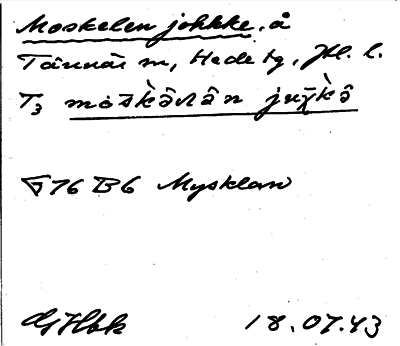 Moskelen johkke, å
Tännäs sn, Hede tg, Jtl. l.
T3 mòs̄k̀ə̂лân juχ̄k̀ə̂
G76 B6 Mysklan
18.07.43